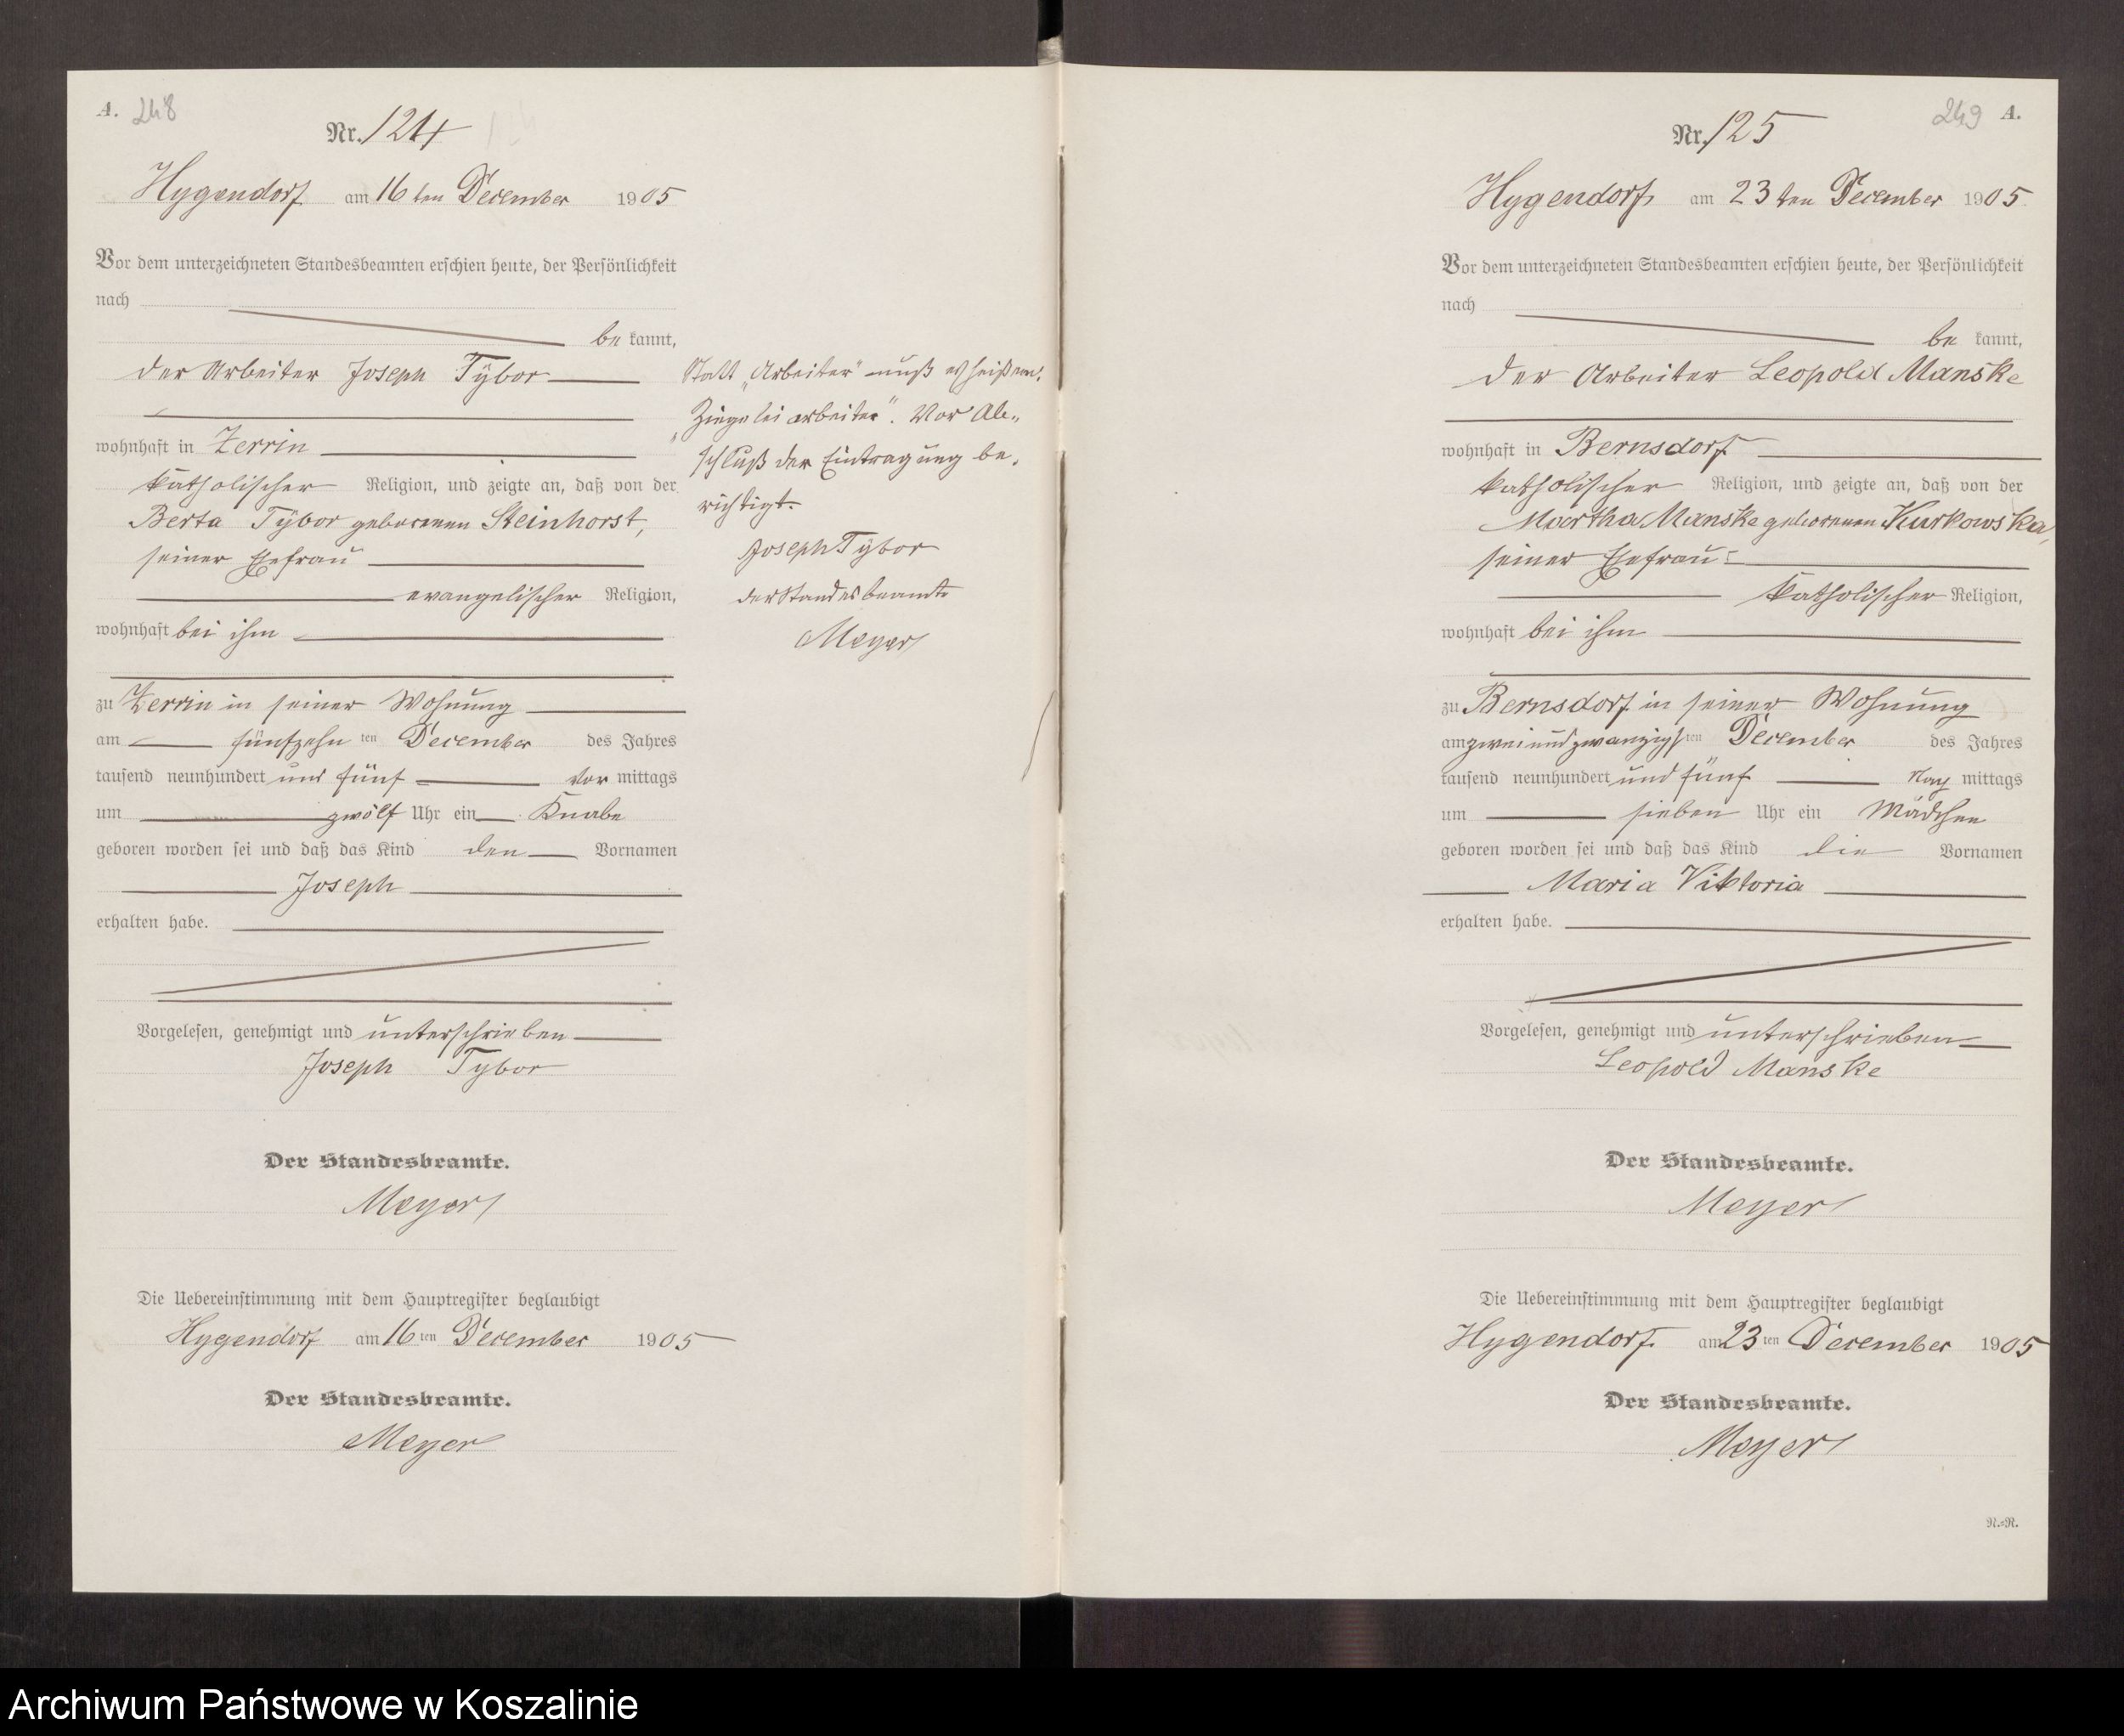 A. 248
Nr. 124
Hygendorf am 16ten December 1905
Vor dem unterzeichneten Standesbeamten erschien heute, der Persönlichkeit
nach
be kannt,
der Arbeiter Joseph Tybor
wohnhaft in Zerrin
katholischer Religion, und zeigte an, daß von der
Berta Tybor geborenen Steinhorst,
seiner Ehefrau
evangelischer Religion,
wohnhaft bei ihm
zu Zerrin in seiner Wohnung
am fünfzehn ten December des Jahres
tausend neunhundert und fünf Vor mittags
um zwölf Uhr ein Knabe
geboren worden sei und daß das Kind den Vornamen
Joseph
erhalten habe.
Vorgelesen, genehmigt und unterschrieben
Joseph Tybor
Der Standesbeamte.
Meyer
Die Uebereinstimmung mit dem Hauptregister beglaubigt
Hygendorf am 16ten December 1905
Der Standesbeamte.
Meyer
Statt „Arbeiter" muß es heißen:
„Ziegeleiarbeiter". Vor Ab-
schluß der Eintragung be-
richtigt.
Joseph Tybor
der Standesbeamte
Meyer
249 A.
Nr. 125
Hygendorf am 23ten December 1905
Vor dem unterzeichneten Standesbeamten erschien heute, der Persönlichkeit
nach
be kannt,
der Arbeiter Leopold Manske
wohnhaft in Bernsdorf
katholischer Religion, und zeigte an, daß von der
Martha Manske geborenen Kurkowska,
seiner Ehefrau
katholischer Religion,
wohnhaft bei ihm
zu Bernsdorf in seiner Wohnung
am zweiundzwanzigsten December des Jahres
tausend neunhundert und fünf Nach mittags
um sieben Uhr ein Mädchen
geboren worden sei und daß das Kind die Vornamen
Maria Viktoria
erhalten habe.
Vorgelesen, genehmigt und unterschrieben
Leopold Manske
Der Standesbeamte.
Meyer
Die Uebereinstimmung mit dem Hauptregister beglaubigt
Hygendorf am 23ten December 1905
Der Standesbeamte.
Meyer
N.=R.
Archiwum Państwowe w Koszalinie